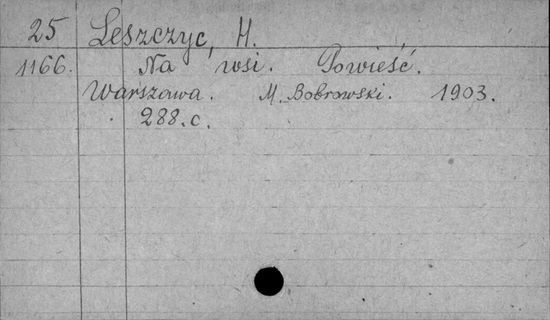 25 Leszczyc, H.
1166. Na wsi. Powieść.
Warszawa. M. Bobrowski. 1903.
288. c.